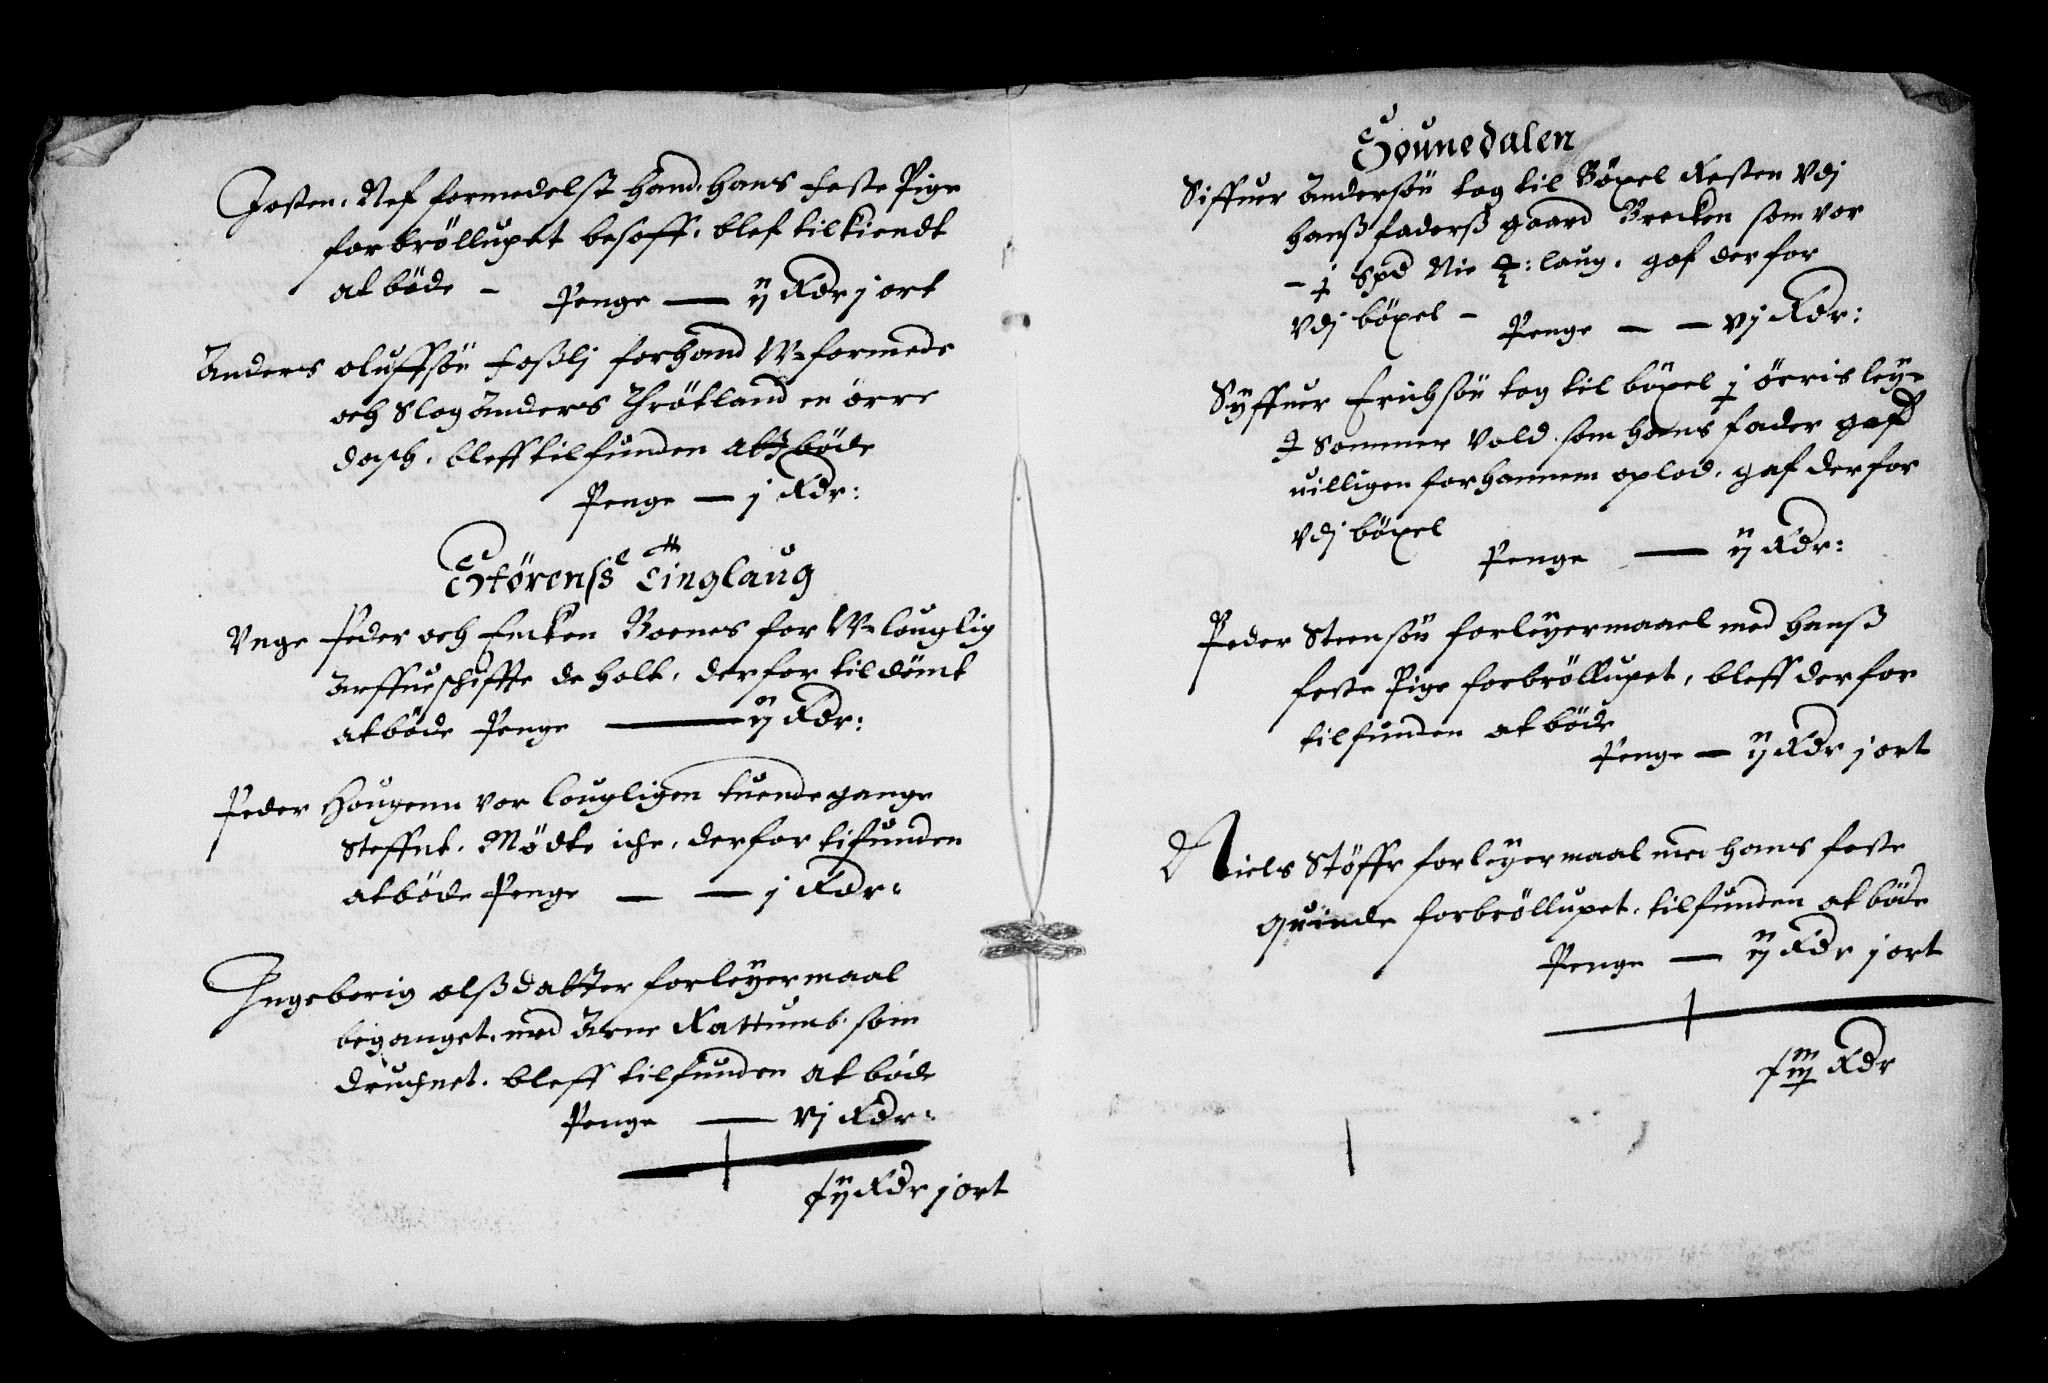 Josten Nef formedelst hand hans feste Pige
for bröllupet besoff, blef tilkiendt
at böde - Penge — ij Rdr j ort
Anders oluffsön foßlj forhand W=formede
och Slog Anders Thrötland en örre
dasch, bleff tilfunden at böde
Penge — j Rdr:
Störenss Tinglaug
Vnge Peder och Encken Boenes for W=louglig
Arffueschiffte de holt, derfor tildömt
at böde Penge — ij Rdr:
Peder Hougenn vor lougligen tuende gange
Steffnt. Mödte iche, derfor tifunden
at böde Penge — — j Rdr:
Ingeborig olßdatter for leyermaal
beganget, med Arne som
druchnet. bleff tilfunden at böde
Penge — vj Rdr:
ij Rdr j ort
Sounedalen
Siffuer Andersön tog til Böxel Resten Vdj
hanß faderß gaard Brecken som vor
- j Spd Nie laug. gaf der for
Vdj böxel - Penge — — vj Rdr:
Syffuer Erichsön tog til böxel j öeris ley=
j Sommer Vold. som hans fader gaf
uilligen for hannem oplod, gaf der for
Vdj böxel Penge — ij Rdr:
Peder Steensön for leyermaael med hanß
feste Pige for bröllupet, bleff der for
tilfunden at böde
Penge — ij Rdr j ort
Niels Stöffr for leyermaal med hans feste
quinde for bröllupet. tilfunden at böde
Penge — ij Rdr j ort
Rdr